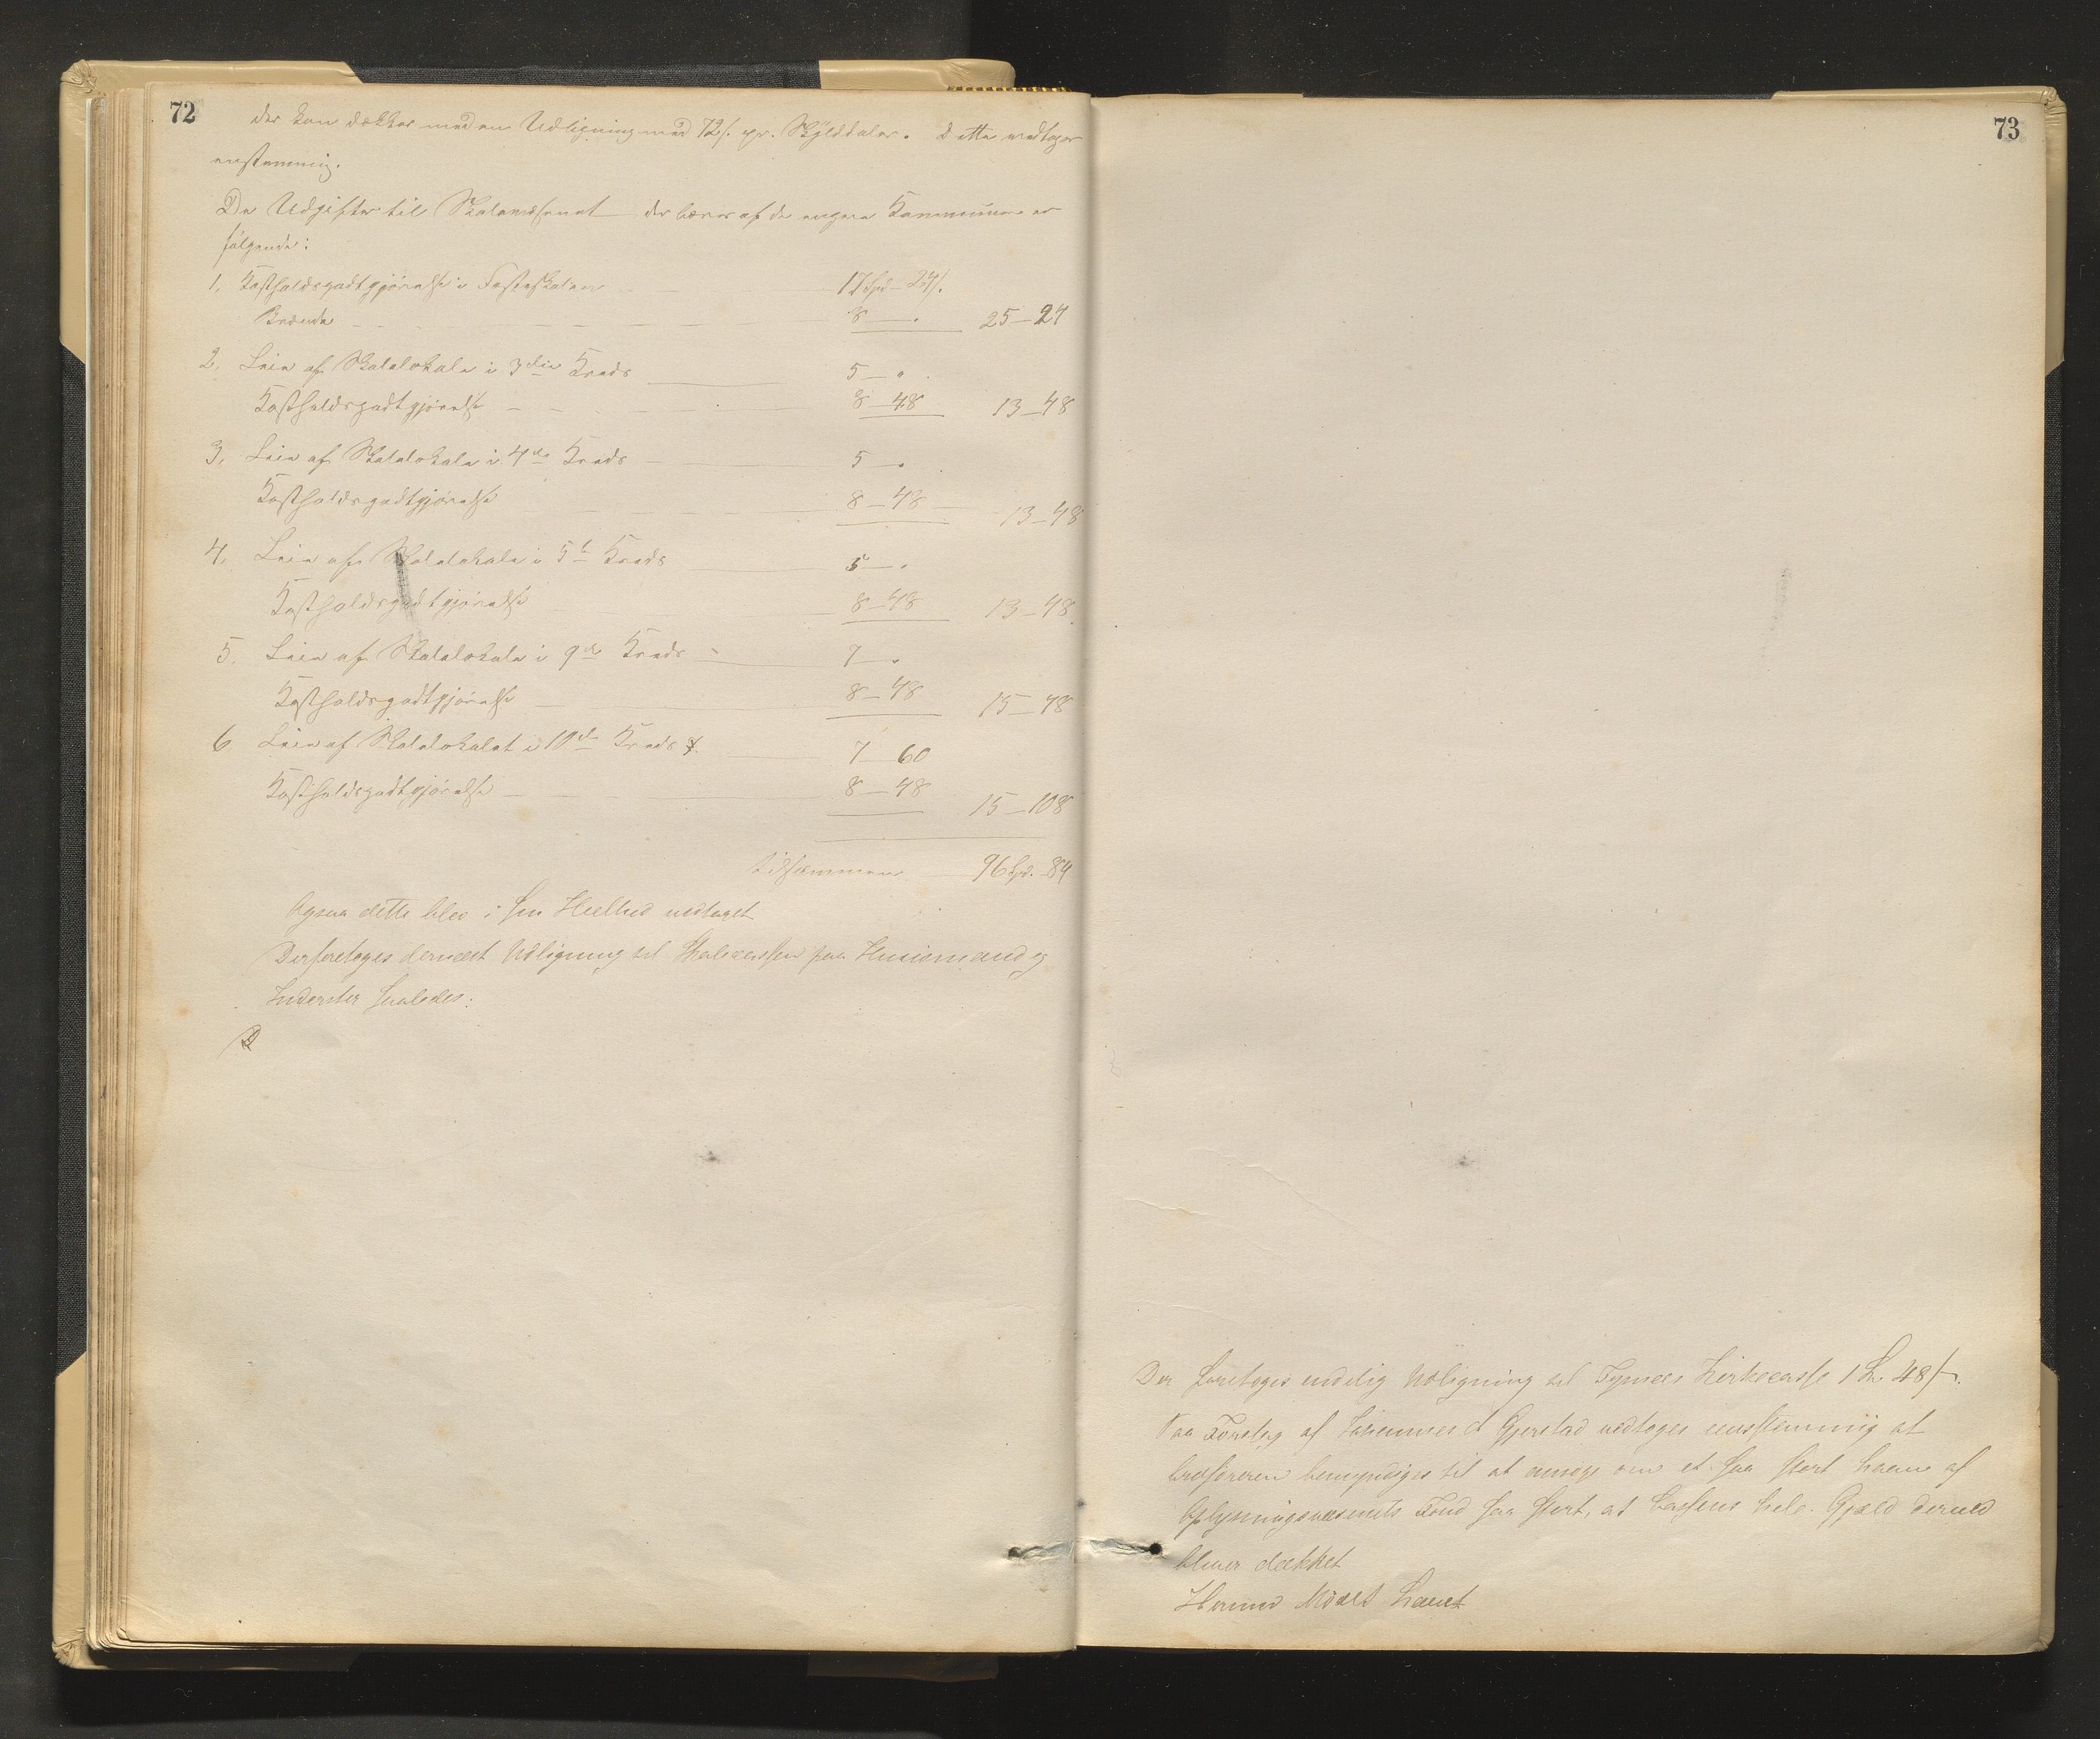 72
der kan dækkes med en Udligning med 72/. pr. Skylddaler. Dette vedtages
enstemmig.
De Udgifter til Skolevæsenet der bæres af de engere Kommuner er
følgende:
1. Kostholdsgodtgjørelse i Fasteskolen 17 Spd - 24/.
Brænde 8 - " 25 - 24
2. Leie af Skolelokale i 3die Kreds 5 - "
Kostholdsgodtgjørelse 8 - 48 13 - 48
3. Leie af Skolelokale i 4de Kreds 5 - "
Kostholdsgodtgjørelse 8 - 48 13 - 48
4. Leie af Skolelokale i 5t Kreds 5 - "
Kostholdsgodtgjørelse 8 - 48 13 - 48
5. Leie af Skolelokale i 9de Kreds 7 - "
Kostholdsgodtgjørelse 8 - 48 15 - 48
6 Leie af Skolelokalet i 10de Kreds 7 60
Kostholdsgodtgjørelse 8 - 48 15 - 108
tilsammen 96 Spd. - 84
Ogsaa dette blev i sin Heelhed vedtaget
Der foretoges dernæst Udligning til Skolecassen paa Huusmænd og
Inderster saaledes:
73
Der foretoges endelig Udligning til Kirkecasse 48/.
Paa Forslag af Gjerstad vedtoges eenstemmig at
Ordføreren bemyndiges til at ansøge om et saa stort Laan af
Oplysningsvæsenets Fond saa stort, at Cassens hele Gjæld derved
bliver dækket
Hermed Mødet hævet